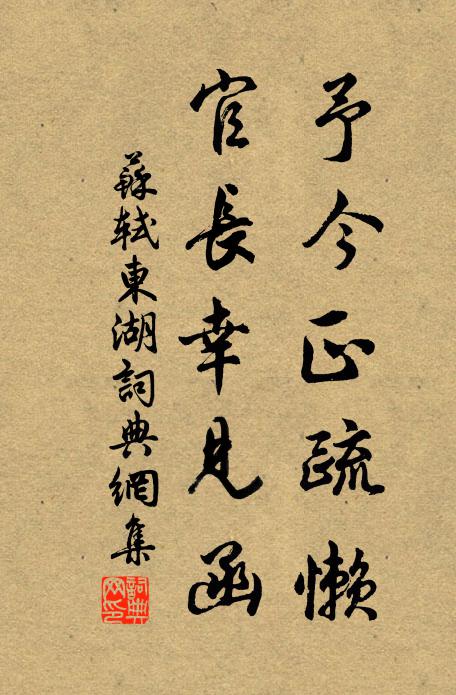 予今正疏懶
官長幸見函
蘇軾東湖詞典網集
詞典網印